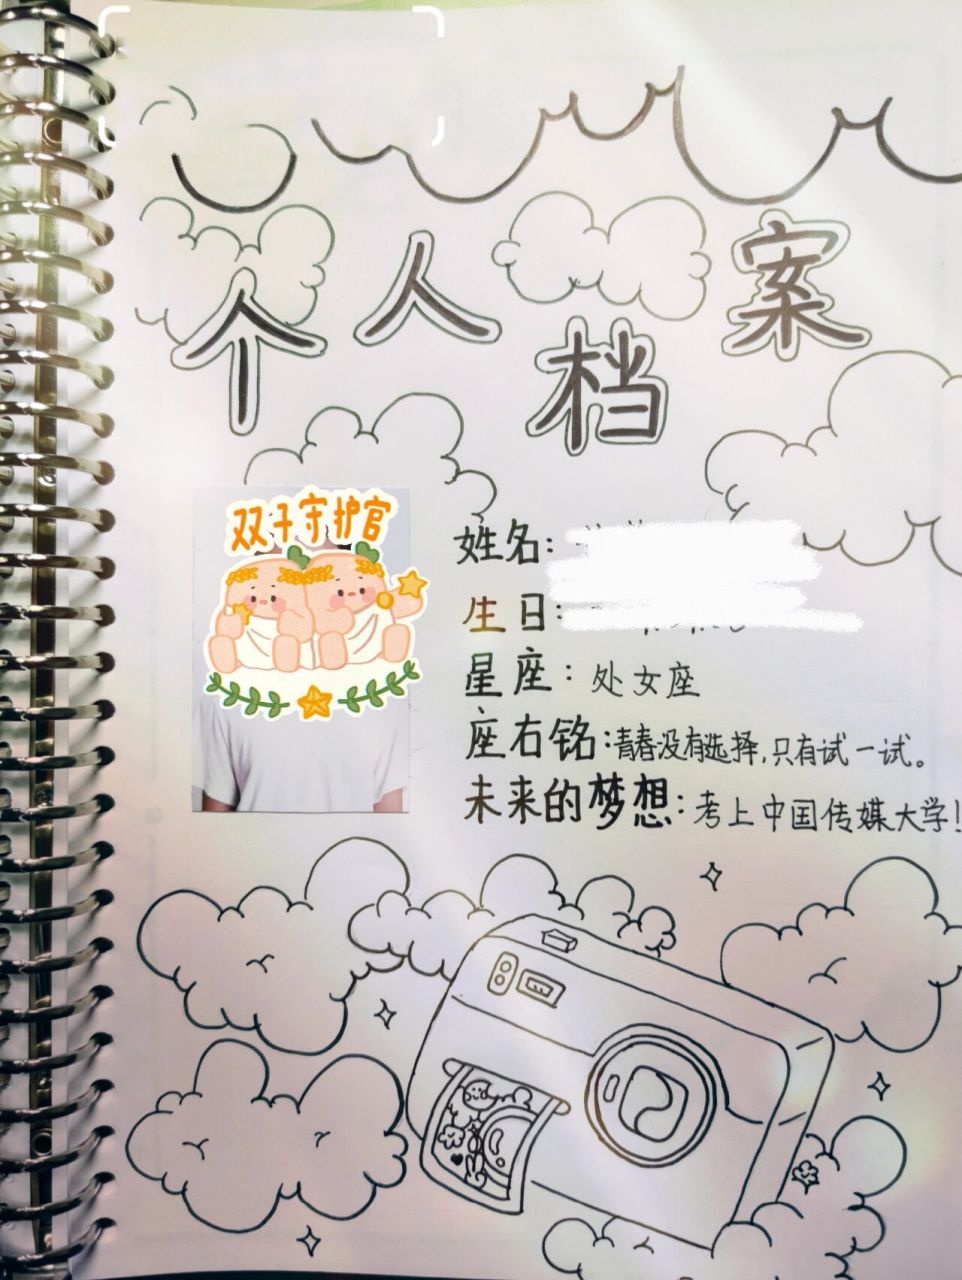 个人档案
双子守护官
姓名:
生日:
星座:处女座
座右铭:青春没有选择,只有试一试。
未来的梦想:考上中国传媒大学!